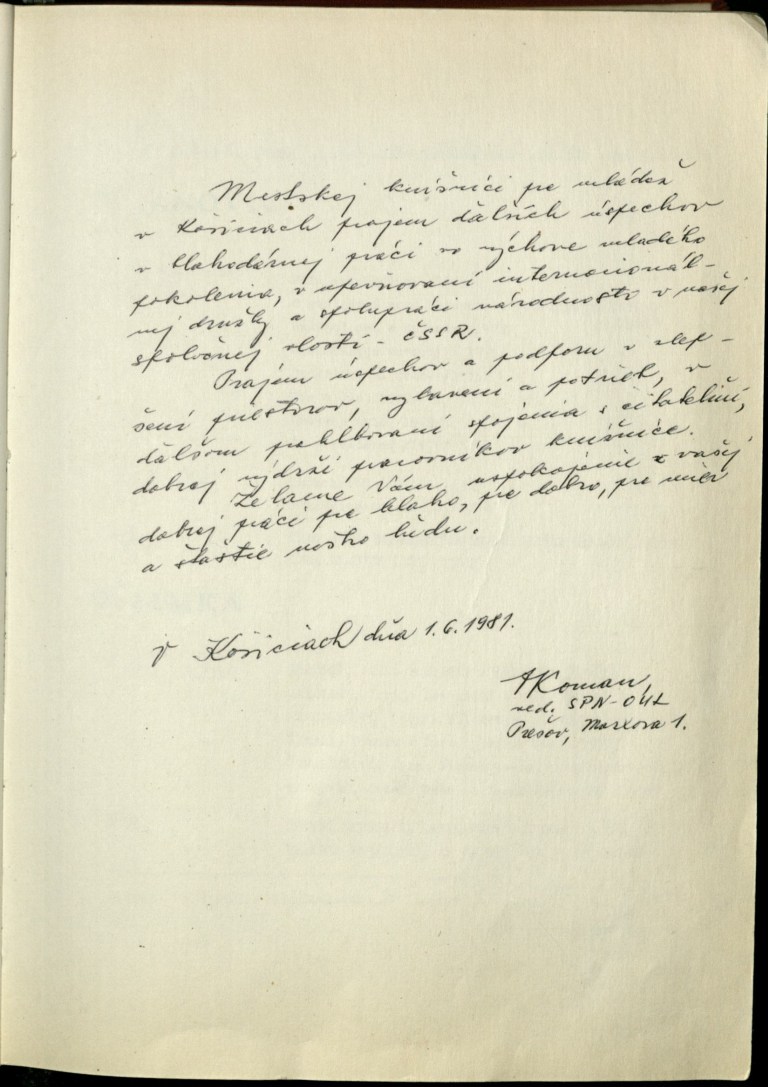 Mestskej knižnici pre mládež
v Košiciach prajem ďalších úspechov
v blahodárnej práci vo výchove mladého
pokolenia, v upevňovaní internacionál-
nej družby a spolupráci národností v našej
spoločnej vlasti - ČSSR.
Prajem úspechov a podporu v zlep-
šení priestorov, vybavení a potrieb, v
ďalšom prehlbovaní spojenia s čitateľmi,
dobrej výdrži pracovníkov knižnice.
Želáme Vám uspokojenie z vašej
dobrej práci pre blaho, pre dobro, pre mier
a šťastie nášho ľudu.
V Košiciach dňa 1.6.1981.
Koman,
red. SPN-OUL
Prešov, Marxova 1.